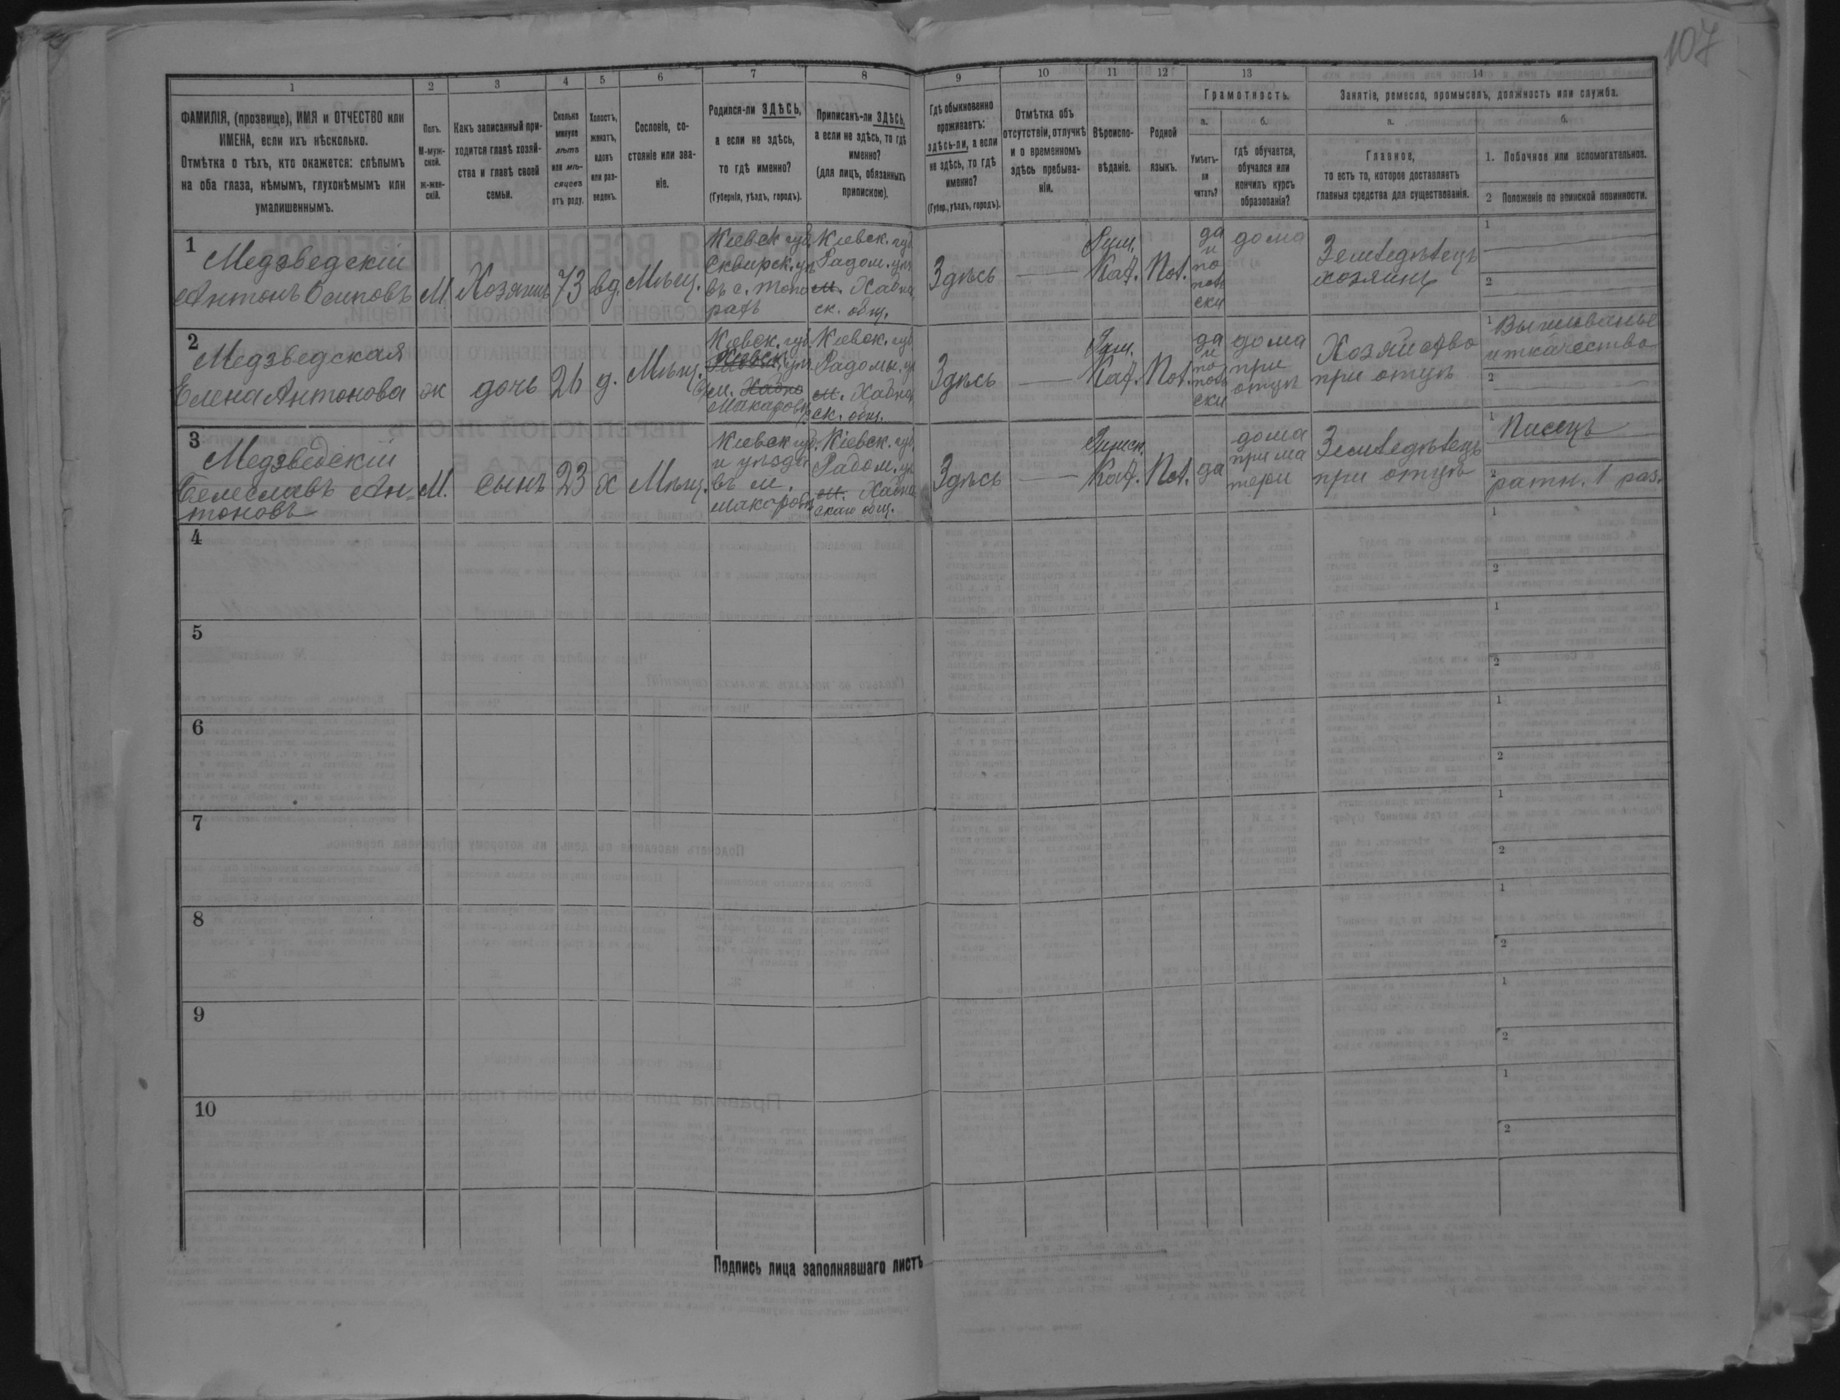 107
1
2
3
4
5
6
7
8
9
10
11
12
13
14
ФАМИЛІЯ, (прозвище), ИМЯ и ОТЧЕСТВО или
ИМЕНА, если ихъ нѣсколько.
Отмѣтка о тѣхъ, кто окажется: слѣпымъ
на оба глаза, нѣмымъ, глухонѣмымъ или
умалишеннымъ.
Полъ.
М-муж-
ской.
ж-жен-
скій.
Какъ записанный при-
ходится главѣ хозяй-
ства и главѣ своей
семьи.
Сколько
минуло
лѣтъ
или мѣ-
сяцевъ
отъ роду.
Холостъ,
женатъ,
вдовъ
или раз-
веденъ.
Сословіе, со-
стояніе или зва-
ніе.
Родился-ли ЗДѢСЬ,
а если не здѣсь,
то гдѣ именно?
(Губернія, уѣздъ, городъ).
Приписанъ-ли ЗДѢСЬ,
а если не здѣсь, то гдѣ
именно?
(для лицъ, обязанныхъ
припискою).
Гдѣ обыкновенно
проживаетъ:
здѣсь-ли, а если
не здѣсь, то гдѣ
именно?
(Губер., уѣздъ, городъ).
Отмѣтка объ
отсутствіи, отлучкѣ
и о временномъ
здѣсь пребыва-
ніи.
Вѣроиспо-
вѣданіе.
Родной
языкъ.
Грамотность.
а.
Умѣетъ-
ли
читать?
б.
гдѣ обучается,
обучался или
кончилъ курсъ
образованія?
Занятіе, ремесло, промыселъ, должность или служба.
а.
Главное,
то есть то, которое доставляетъ
главныя средства для существованія.
б.
1. Побочное или вспомогательное.
2 Положеніе по воинской повинности.
1
Медзведскій
Антонъ Осиповъ
М
Хозяинъ
73
вд.
Мѣщ.
Кіевск. губ.
Сквирск. у.
въ с. Топо
рахъ
Кіевск. губ
Радом. у.
м. Хабна
ск. общ.
Здѣсь
Рим.
Кат.
Пол.
да
и
по
поль
ски
дома
Земледѣлецъ
хозяинъ
1
2
2
Медзведская
Елена Антонова
ж
дочь
26
д.
Мѣщ.
Кіевск. губ
м. Хабно
Макаровѣ
Кіевск. губ
Радом. у.
м. Хабна
ск. общ.
Здѣсь
Рим.
Кат.
Пол.
да
и
по
поль
ски
дома
при
отцѣ
Хозяйство
при отцѣ
1 Вышиванье
и ткачество
2
3
Медзведскій
Белеславъ Ан-
тоновъ
М.
сынъ
23
х
Мѣщ.
Кіевск. губ.
и уѣзда
въ м.
Макаровѣ
Кіевск. губ.
Радом. у.
м. Хабна
скаго общ.
Здѣсь
Римск.
Кат.
Пол.
да
дома
при ма
тери
Земледѣлецъ
при отцѣ
1 Писецъ
2 ратн. 1 раз.
4
1
2
5
1
2
6
1
2
7
1
2
8
1
2
9
1
2
10
1
2
Подпись лица заполнявшаго листъ